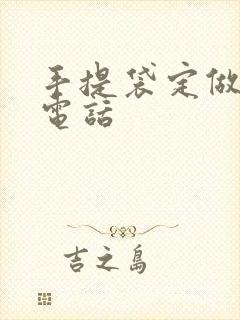 手提袋定做
電話
吉之島